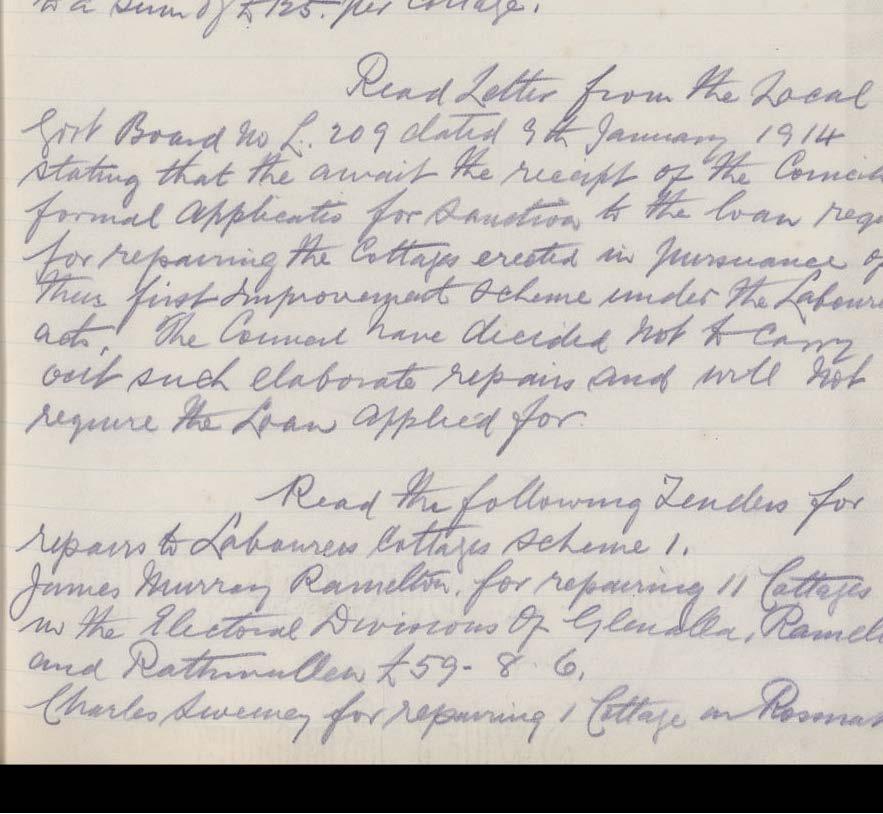 to a sum of £125. per Cottage.
Read Letter from the Local
Govt Board No L. 209 dated 9th January 1914
stating that the await the receipt of the Council
formal applicatio for sanction to the loan requ
for repairing the Cottages erected in pursuance of
their first Improvement Scheme under the Laboure
acts. The Council have decided not to carry
out such elaborate repairs and will not
require the Loan applied for.
Read the following Tenders for
repairs to Labourers Cottages Scheme 1.
James Murray Ramelton, for repairing 11 Cottages
in the Electoral Divisions Of Glenalla, Ramel
and Rathmullen £59-8 6.
Charles Sweeney for repairing 1 Cottage on Rosnak